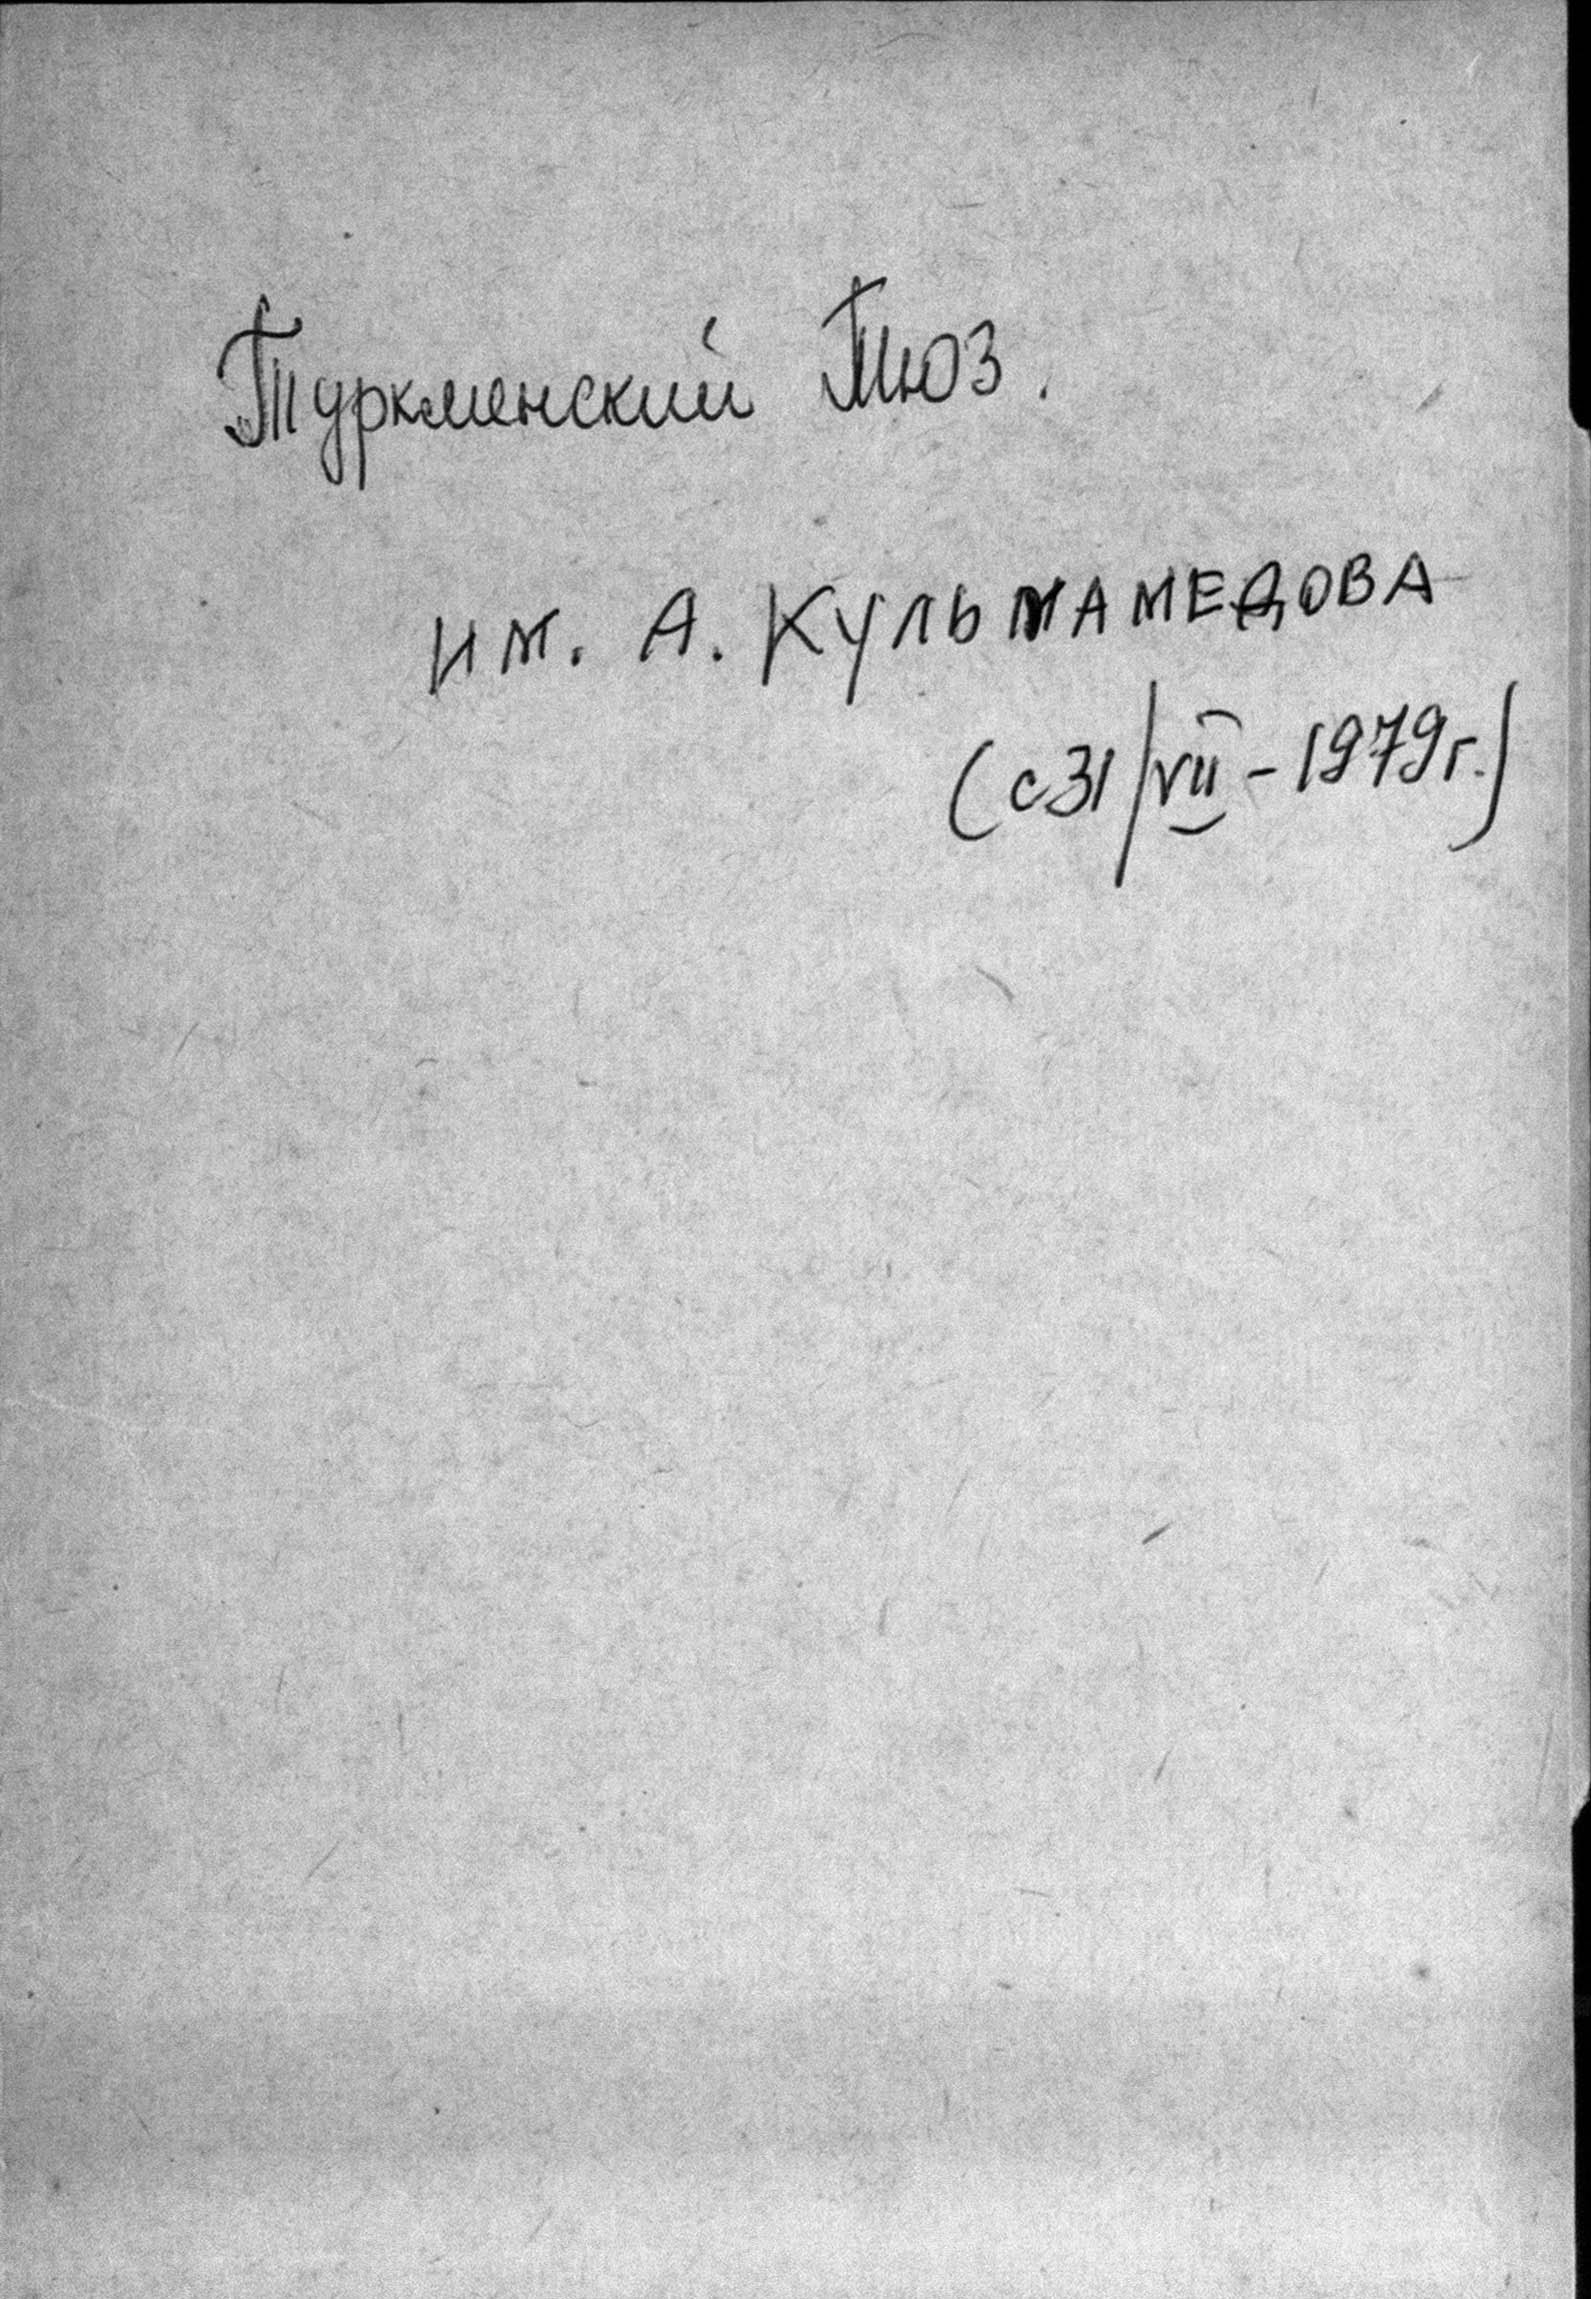 Туркменский Тюз.
им. А. КУЛЬМАМЕДОВА
(с 31/VII - 1979г.)